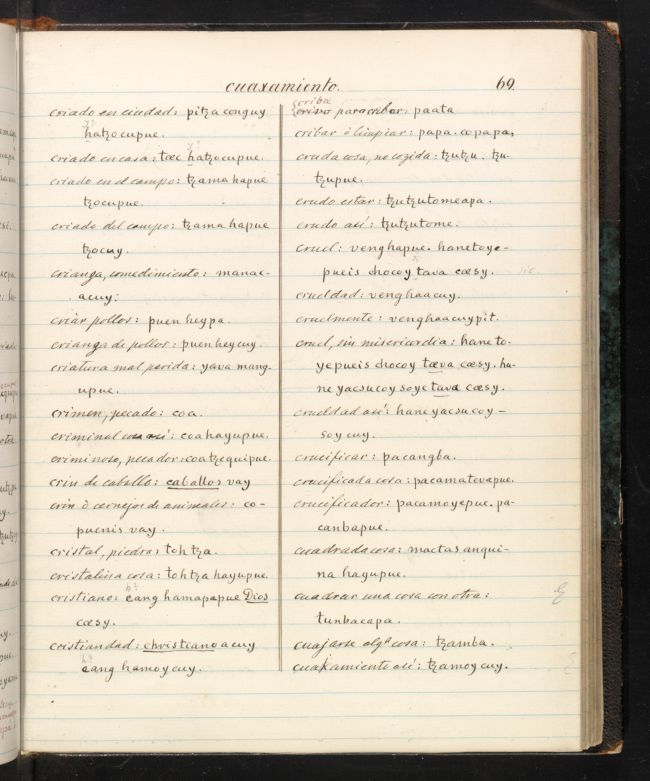 cuaxamiento.
69.
criado en ciudad: pitza conguy
x?
hatzocupue.
x?
criado en casa: tæc hatzocupue.
criado en el campo: tzama hapue
tzocupue.
criado del campo: tzama hapue
tzocuy.
crianza, comedimiento: manac-
acuy:
criàr pollos: puen heypa.
crianza de pollos: puen heycuy.
criatura mal parida: yava mang.
upue.
crimen, pecado: coa.
criminal así: coahayupue.
criminoso, pecador: coatzequipue.
crin de caballo: caballos vay
crin ò cernejos de animales: co-
puenis vay.
cristal, piedra: toh tza.
cristalina cosa: tohtza hayupue.
h?
cristiano: cang hamapapue Dios
cæsy.
cristiandad: christiano acuy
h?
cang hamoycuy.
criba
crivo para cribar: paata
cribar ò limpiar: papa. copapa,
cruda cosa, no cozida: tzutzu. tzu-
tzupue.
crudo estar: tzutzutomeapa.
crudo así: tzutzutome.
cruel: venghapue. hanetoye-
pueis chocoy tava cæsy. sic.
crueldad: venghaacuy.
cruelmente: venghaacuypit.
cruel, sin misericordia: haneto-
yepueis chocoy tæva cæsy. ha-
ne yacsucoysoye tava cæsy.
crueldad así: hane yacsucoy-
soycuy.
crucificar: pacangba.
crucificada cosa: pacamatevapue.
crucificador: pacamoyepue. pa-
canbapue.
cuadrada cosa: mactas anqui-
na hayupue.
cuadrar una cosa con otra:
tunbacapa.
cuajarse algª cosa: tzamba.
cuaxamiento así: tzamoycuy.